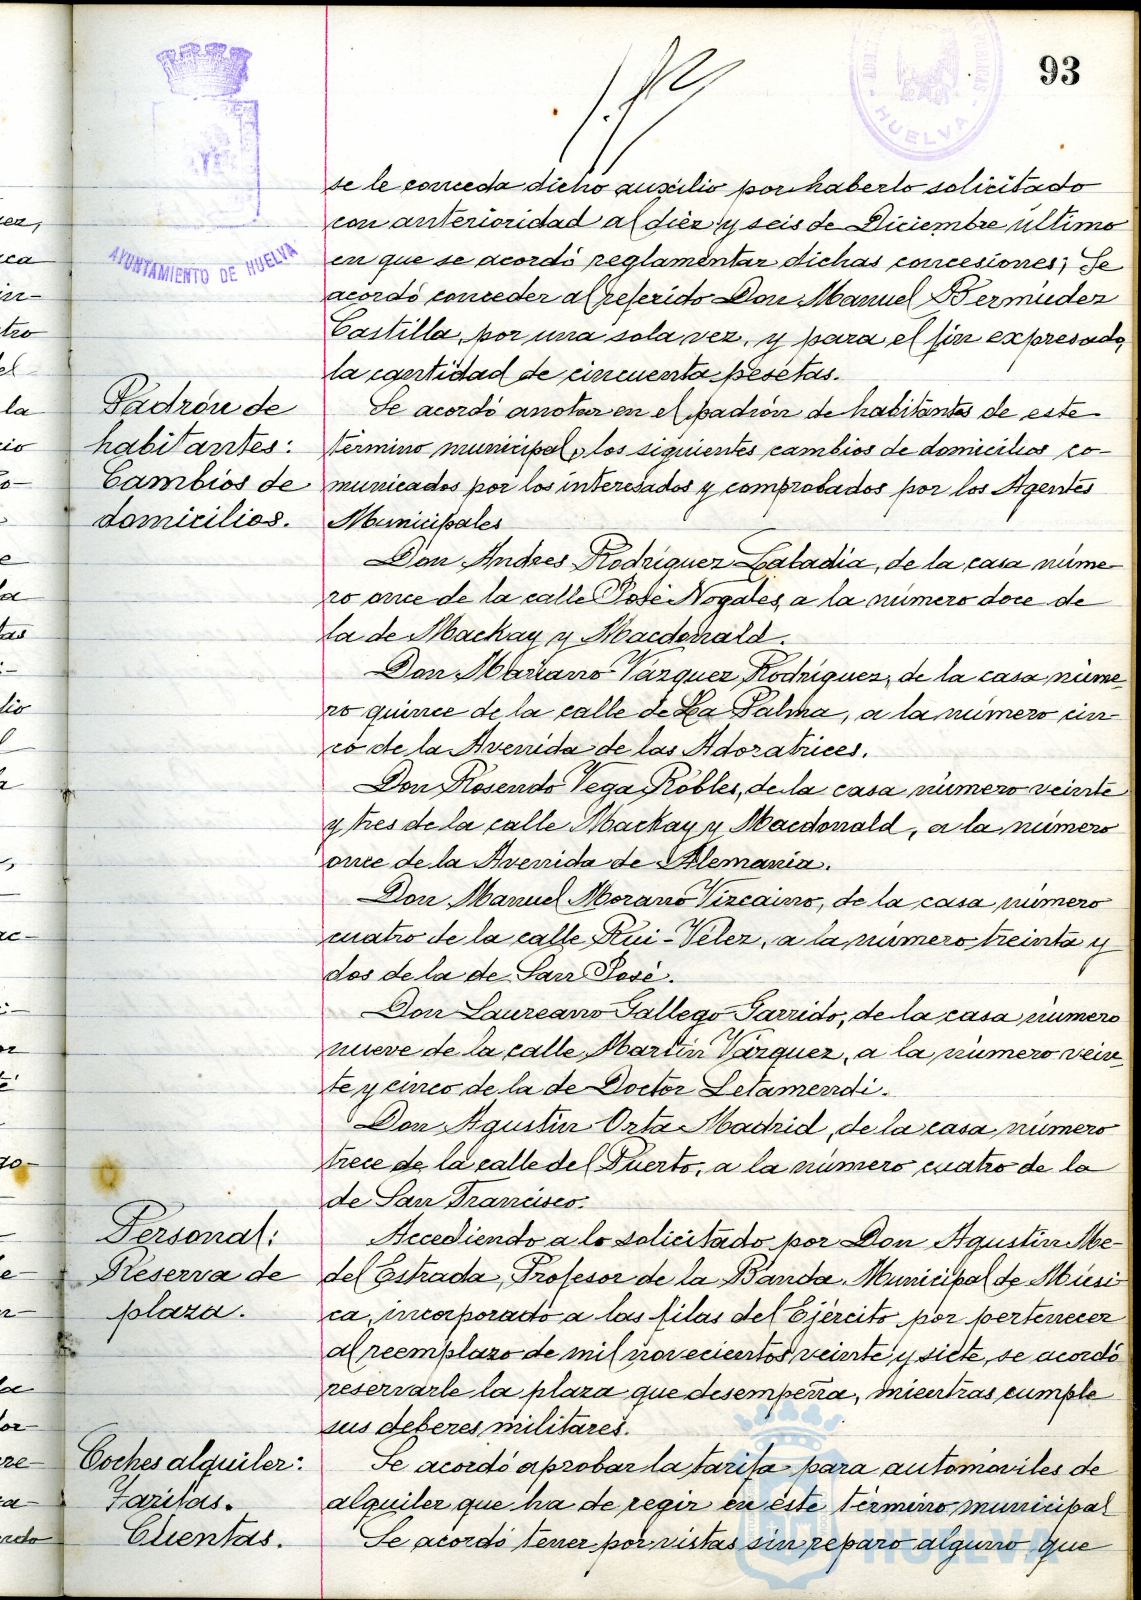 93
HUELVA
AYUNTAMIENTO DE HUELVA
se le conceda dicho auxilio por haberlo solicitado
con anterioridad al diez y seis de Diciembre último
en que se acordó reglamentar dichas concesiones; Se
acordó conceder al referido Don Manuel Bermúdez
Castilla, por una sola vez, y para el fin expresado,
la cantidad de cincuenta pesetas.
Padrón de
habitantes:
Cambios de
domicilios.
Se acordó anotar en el padrón de habitantes de este
término municipal, los siguientes cambios de domicilios co-
municados por los interesados y comprobados por los Agentes
Municipales
Don Andres Rodríguez Labadía, de la casa núme-
ro once de la calle José Nogales, a la número doce de
la de Mackay y Macdonald.
Don Mariano Vázquez Rodríguez, de la casa núme-
ro quince de la calle de La Palma, a la número cin-
co de la Avenida de las Adoratrices.
Don Rosendo Vega Robles, de la casa número veinte
y tres de la calle Mackay y Macdonald, a la número
once de la Avenida de Alemania.
Don Manuel Morano Vizcaino, de la casa número
cuatro de la calle Rui-Vélez, a la número treinta y
dos de la de San José.
Don Laureano Gallego Garrido, de la casa número
nueve de la calle Martín Vázquez, a la número vein-
te y cinco de la de Doctor Letamendi.
Don Agustín Orta Madrid, de la casa número
trece de la calle del Puerto, a la número cuatro de la
de San Francisco.
Personal:
Reserva de
plaza.
Accediendo a lo solicitado por Don Agustín Me-
del Estrada, Profesor de la Banda Municipal de Músi-
ca, incorporado a las filas del Ejército por pertenecer
al reemplazo de mil novecientos veinte y siete, se acordó
reservarle la plaza que desempeña, mientras cumple
sus deberes militares.
Coches alquiler:
Tarifas.
Se acordó aprobar la tarifa para automóviles de
alquiler que ha de regir en este término municipal
Cuentas.
Se acordó tener por vistas sin reparo alguno que
HUELVA